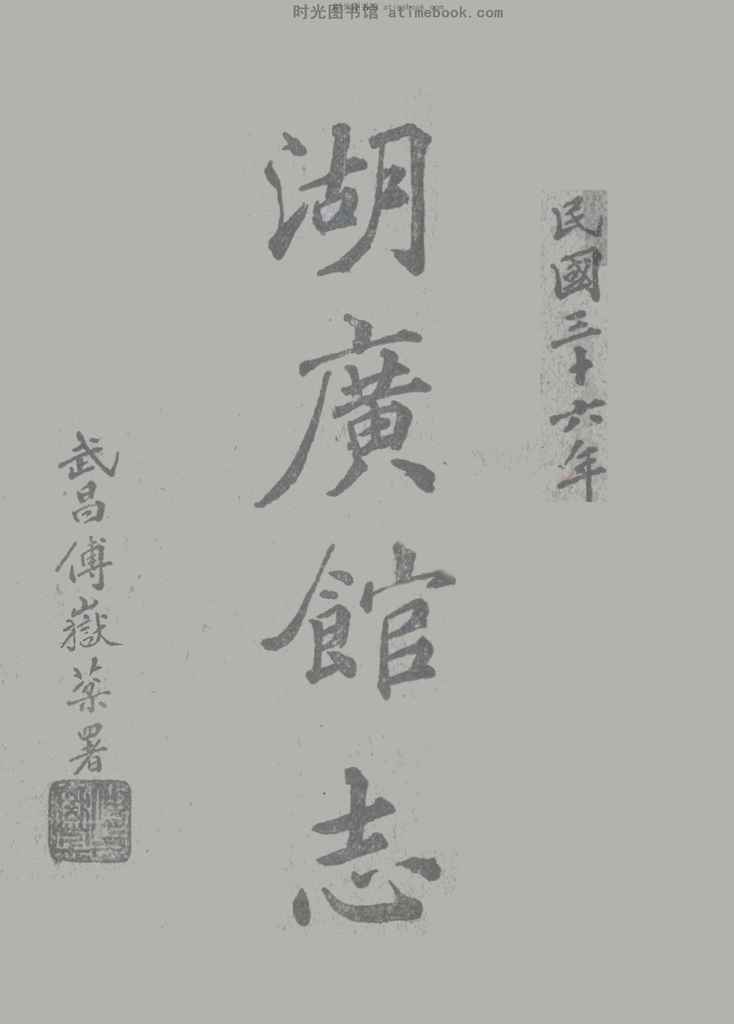 时光图书馆 atimebook.com
民國三十六年
湖廣館志
武昌傅嶽棻署